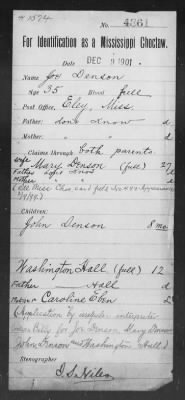 # 1574
No. 4361
For Identification as a Mississippi Choctaw.
Date DEC 9 1901.
Name Joe Denson
Age 35 Blood full
Post Office, Eley, Miss.
Father: don't know d
Mother: " d
Claims through both parents
wife Mary Denson (full) 27
Father don't know d
Mother " d
(See Miss Choc card field
Children:
John Denson 8 mo
Washington Hall (full) 12
Father — Hall d
Mother Caroline Eben d
(Application by
interpreter
for Joe Denson Mary Denson
John Denson and Washington Hall)
Stenographer